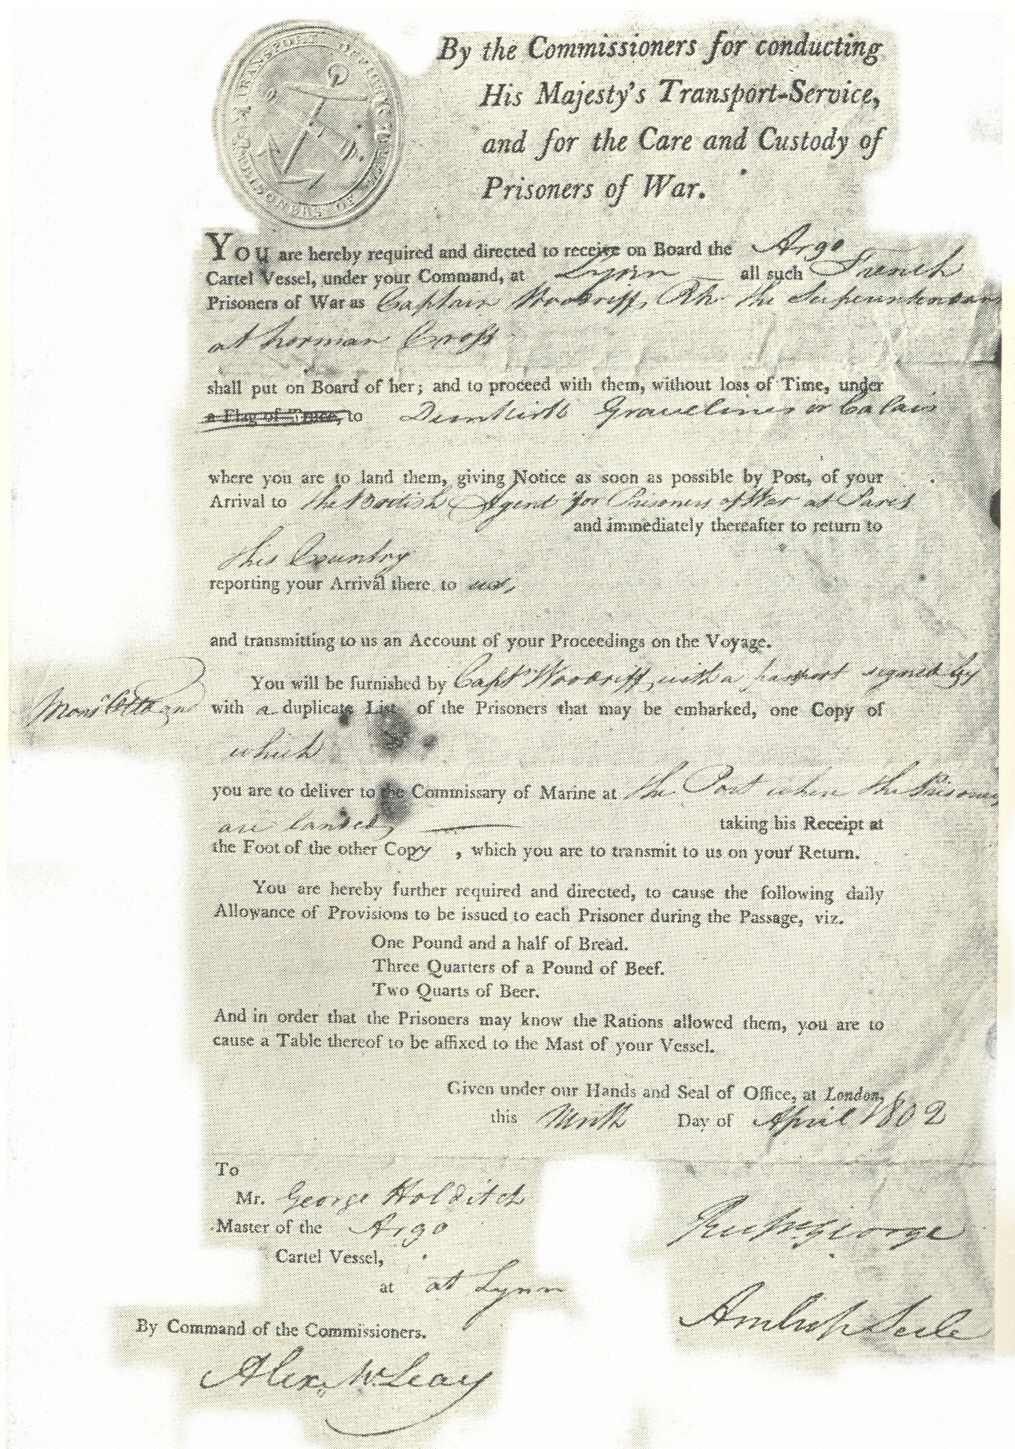 TRANSPORT OFFICE
PRISONERS OF WAR
By the Commissioners for conducting
His Majesty's Transport-Service,
and for the Care and Custody of
Prisoners of War.
You are hereby required and directed to receive on Board the Argo
Cartel Vessel, under your Command, at Lynn — all such French
Prisoners of War as Captain Woodriff, RN. the Superintendant
at Norman Cross
shall put on Board of her; and to proceed with them, without loss of Time, under
a Flag of Truce, to Dunkirk Gravelines or Calais
where you are to land them, giving Notice as soon as possible by Post, of your
Arrival to the British Agent for Prisoners of War at Paris
and immediately thereafter to return to
this Country
reporting your Arrival there to us,
and transmitting to us an Account of your Proceedings on the Voyage.
You will be furnished by Captn Woodriff, with a passport signed by
Monsr Otto and with a duplicate List of the Prisoners that may be embarked, one Copy of
which
you are to deliver to the Commissary of Marine at the Port where the Prisoners
are landed, — taking his Receipt at
the Foot of the other Copy , which you are to transmit to us on your Return.
You are hereby further required and directed, to cause the following daily
Allowance of Provisions to be issued to each Prisoner during the Passage, viz.
One Pound and a half of Bread.
Three Quarters of a Pound of Beef.
Two Quarts of Beer.
And in order that the Prisoners may know the Rations allowed them, you are to
cause a Table thereof to be affixed to the Mast of your Vessel.
Given under our Hands and Seal of Office, at London,
this Ninth Day of April 1802
To
Mr. George Holditch
Master of the Argo
Cartel Vessel,
at at Lynn
Rup George
Ambr Serle
By Command of the Commissioners.
Alexr McLeay